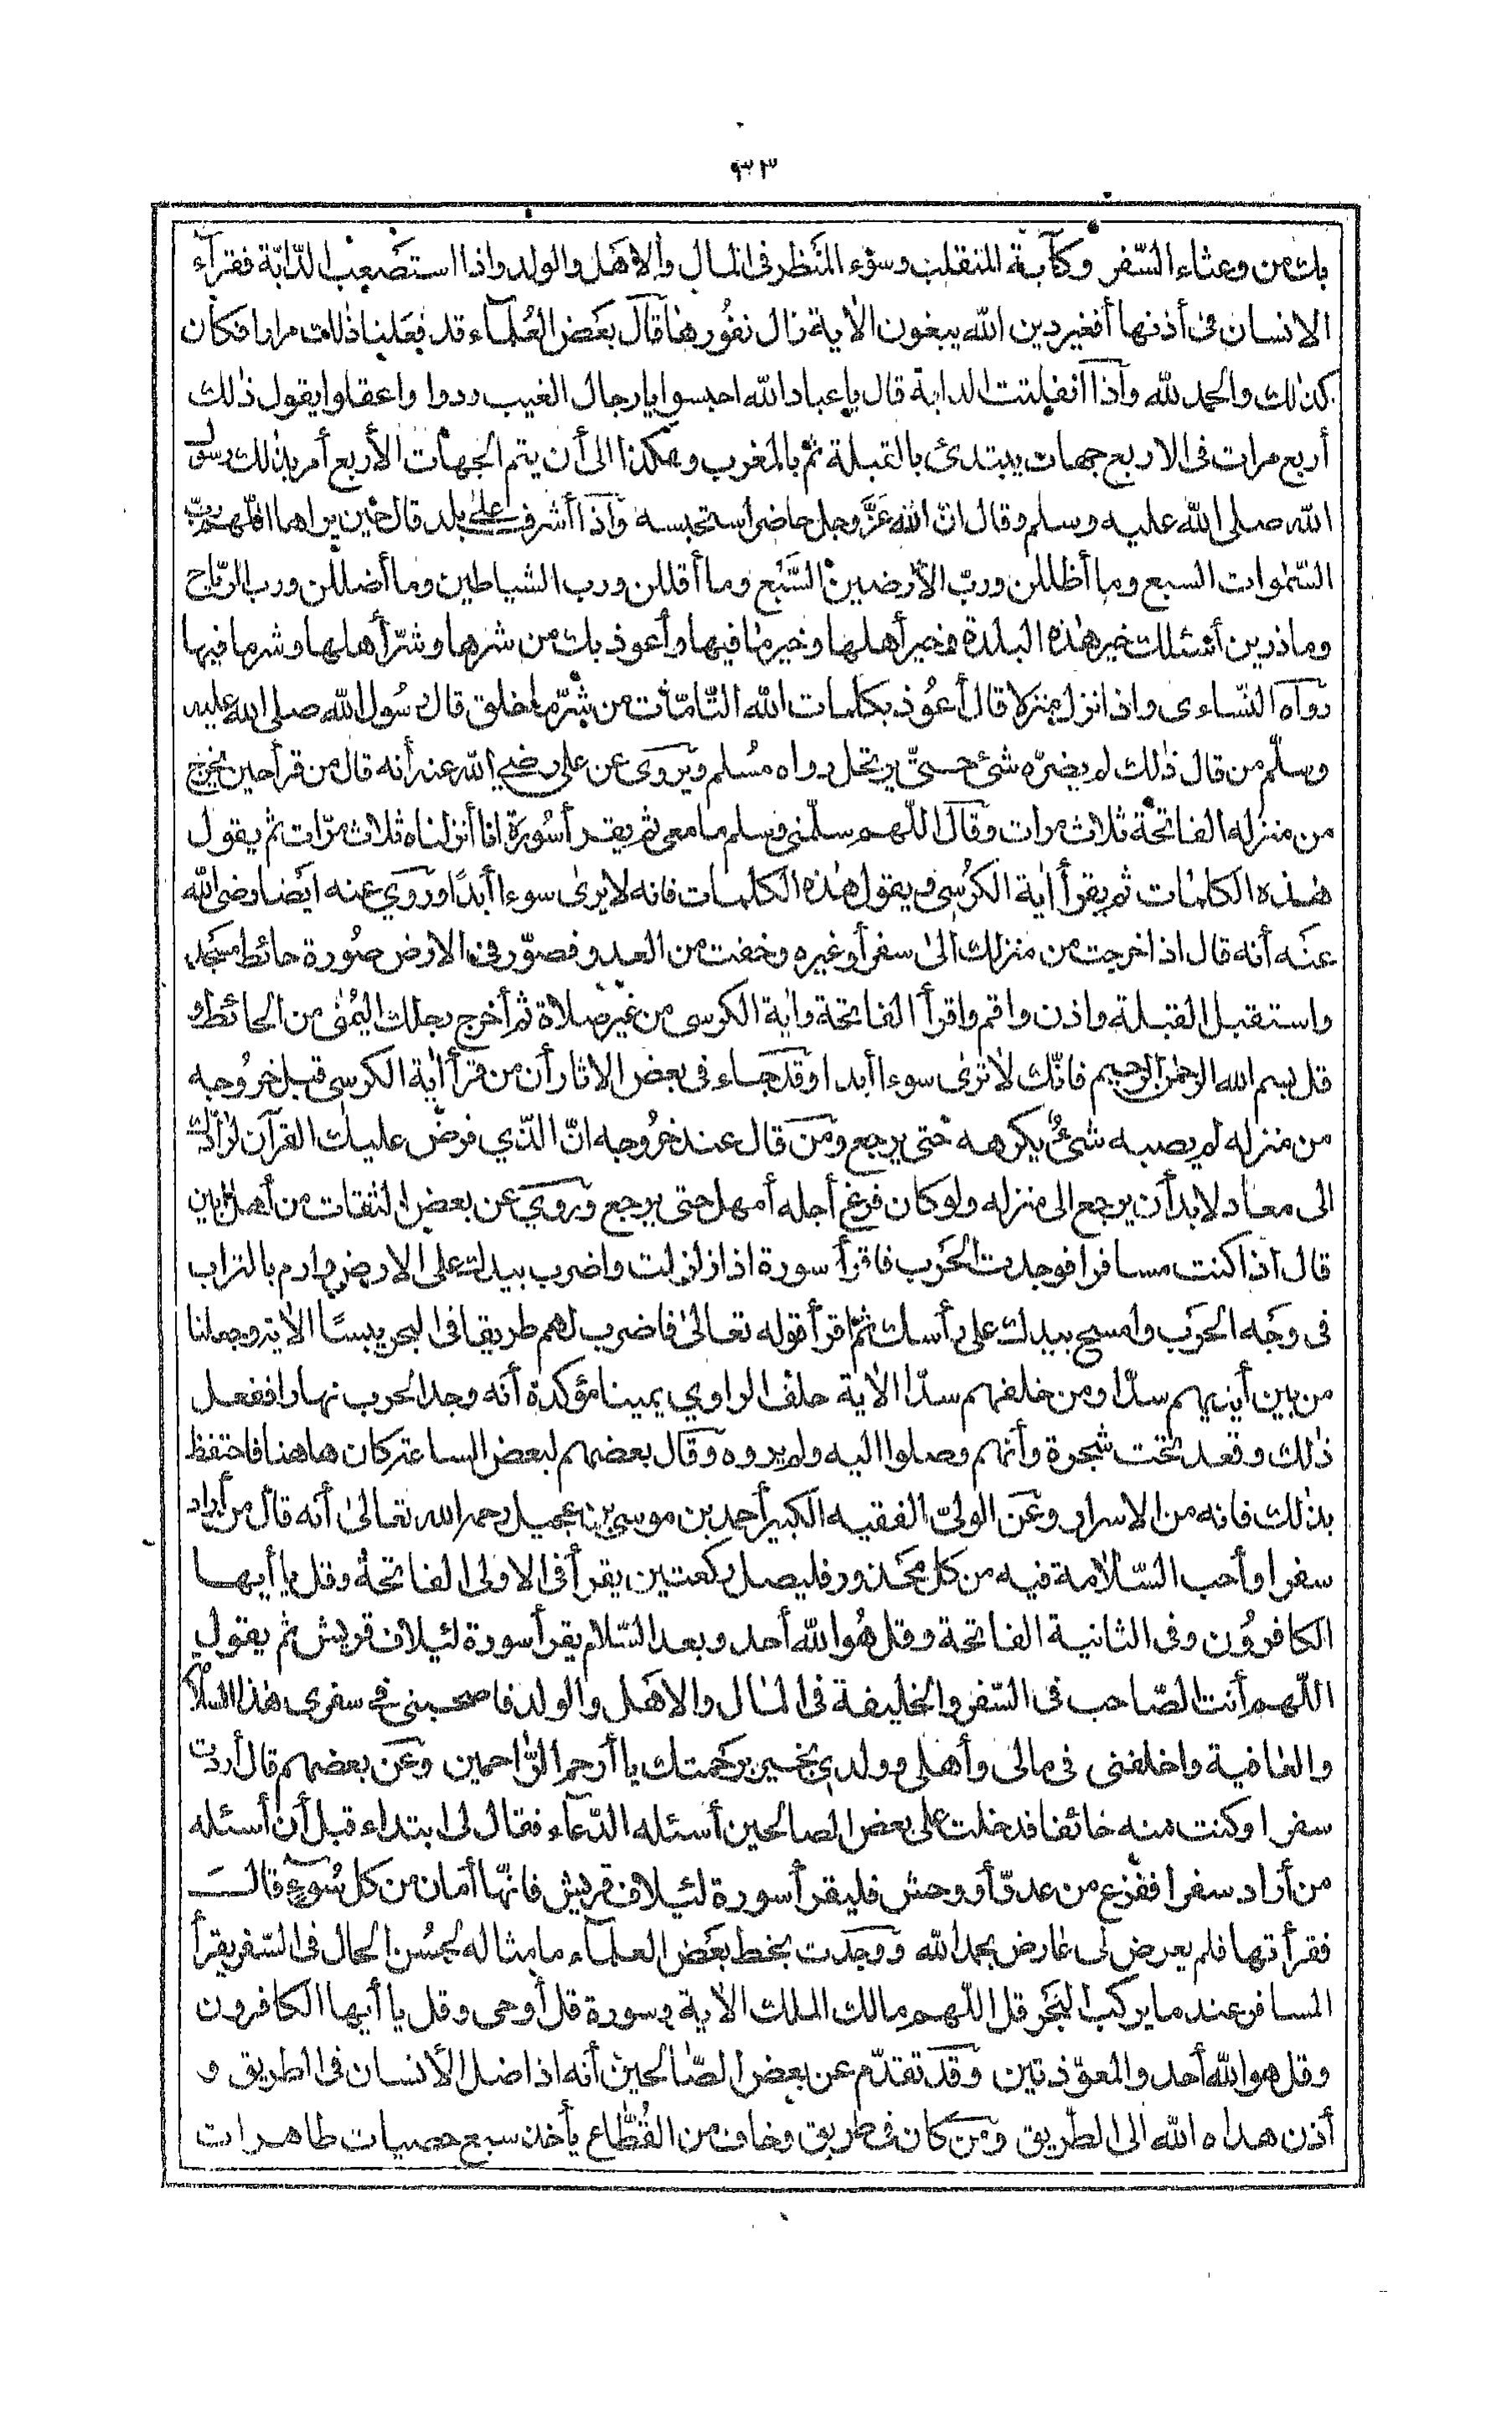 بك من وعثاء السّفر وكآبة المنقلب وسوء المنظر فى المال والاهل والولد واذا استصعبت الدّابّة فقرأ
الانسان فى أذنها أفغير دين الله يبغون الاٰية زال نفورها قال بعض العلماء قد فعلنا ذٰلك مرارا فكان
كذٰلك والحمد لله واذا انفلتت الدابة قال يا عباد الله احبسوا يا رجال الغيب ردوا واعقلوا يقول ذٰلك
أربع مرات فى الاربع جهات يبتدئ بالقبلة ثم بالمغرب وهكذا الى أن يتم الجهات الأربع أمر بذٰلك رسول
الله صلى الله عليه وسلم وقال انّ الله عزّ وجل حاضرا ستحبسه واذا أشرف على بلد قال حين يراها اللّهم ربّ
السّمٰوات السبع وما أظللن وربّ الأرضين السّبع وما أقللن ورب الشياطين وما أضللن ورب الرّياح
وما ذرين أسئلك خير هٰذه البلدة وخير أهلها وخير ما فيها وأعوذ بك من شرها وشرّ أهلها وشر ما فيها
رواه النّساءى واذا نزل منزلا قال أعوذ بكلمات الله التّامّات من شرّ ما خلق قال رسول الله صلى الله عليه
وسلّم من قال ذٰلك لم يضرّه شئ حتىّ يرتحل رواه مسلم ويروى عن على رضي الله عنه أنه قال من قرأ حين يخرج
من منزله الفاتحة ثلاث مرات وقال اللّهم سلّمنى وسلم ما معى ثم يقرأ سورة انا أنزلناه ثلاث مرّات ثم يقول
هٰذه الكلمات ثم يقرأ اٰية الكرسى ويقول هٰذه الكلمات فانه لا يرىٰ سوءا أبدًا وروي عنه ايضا رضى الله
عنه أنه قال اذا خرجت من منزلك الىٰ سفر أو غيره وخفت من العدو فصوّر فى الارض صورة حائط مسجد
واستقبل القبلة واذن واقم واقرأ الفاتحة واٰية الكرسى من غير صلاة ثم أخرج رجلك اليمنٰى من الحائط و
قل بسم الله الرحمٰن الرحيم فانّك لا ترٰى سوءا أبدا وقد جاء فى بعض الاثار أن من قرأ اٰية الكرسى قبل خروجه
من منزله لم يصبه شئٌ يكرهه حتى يرجع ومن قال عند خروجه انّ الّذي فرض عليك القرآن لرادّك
الى معاد لا بد أن يرجع الى منزله ولو كان فرغ أجله أمهل حتى يرجع وروي عن بعض الثقات من أهل
قال اذا كنت مسافرا فوجدت الحرب فاقرأ سورة اذا زلزلت واضرب بيدك على الارض وارم بالتراب
فى وجه الحرب وامسح بيدك على رأسك ثمّ اقرأ قوله تعالىٰ فاضرب لهم طريقا فى البحر يبسًا الاٰية وجعلنا
من بين أيديهم سدّا ومن خلفهم سدّا الاٰية حلف الراوي يمينا مؤكدة أنه وجد الحرب نهارا ففعل
ذٰلك وقعد تحت شجرة وأنهم وصلوا اليه ولم يروه وقال بعضهم لبعض الساعة كان هاهنا فاحتفظ
بذٰلك فانه من الاسرار وعن الولىّ الفقيه الكبير أحمد بن موسى بن عجيل رحمه الله تعالىٰ أنه قال من أراد
سفرا وأحب السّلامة فيه من كل محذور فليصل ركعتين يقرأ فى الاولى الفاتحة وقل يا أيها
الكافرون وفى الثانية الفاتحة وقل هو الله أحد وبعد السّلام يقرأ سورة لئيلاف قريش ثم يقول
اللّهم أنت الصّاحب فى السّفر والخليفة فى المال والاهل والولد فاصحبنى فى سفرى هٰذا السلامة
والعافية واخلفنى فى مالى وأهلى وولدي بخير برحمتك يا أرحم الرّاحمين وعن بعضهم قال أردت
سفرا وكنت منه خائفا فدخلت على بعض الصالحين أسئله الدّعاء فقال لى ابتداء قبل أن أسئله
من أراد سفرا ففزع من عدوّ أو وحش فليقرأ سورة لئيلاف قريش فانّها أمان من كل سوء قال
فقرأتها فلم يعرض لى عارض بحمد الله ووجدت بخط بعض العلماء ما مثاله لحسن الحال فى السّفر يقرأ
المسافر عند ما يركب البحر قل اللّهم مالك الملك الاٰية وسورة قل أوحى وقل يا أيها الكافرون
وقل هو الله أحد والمعوّذتين وقد تقدّم عن بعض الصّالحين أنه اذا ضل الأنسان فى الطريق و
أذن هداه الله الى الطّريق ومن كان فى طريق وخاف من القُطّاع يأخذ سبع حصيات طاهرات